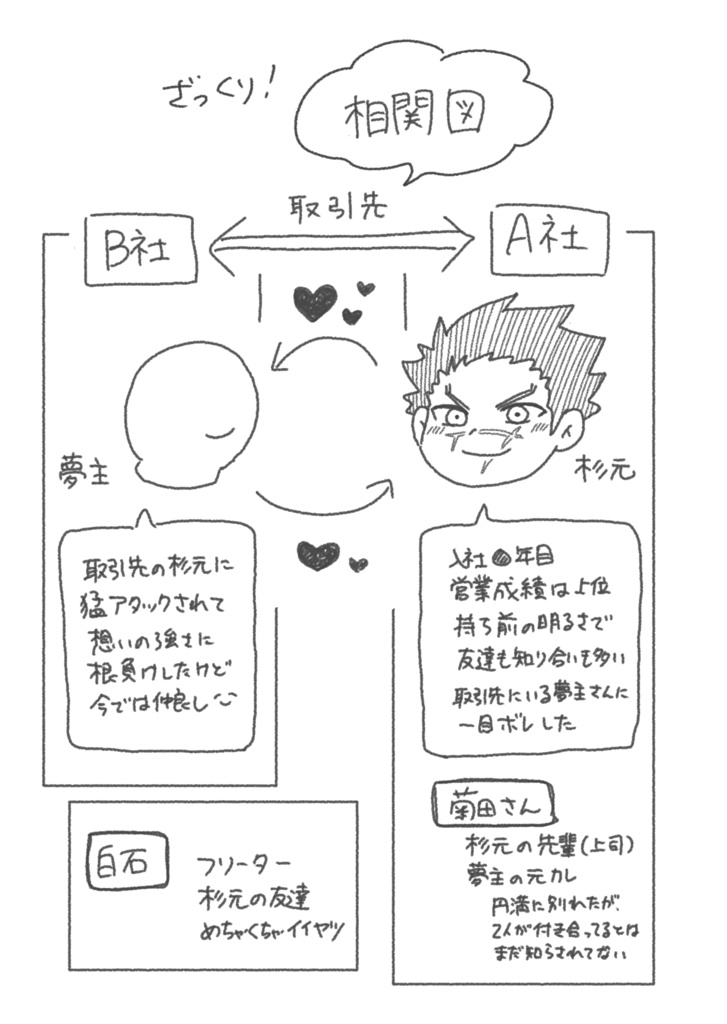 ざっくり!
相関図
取引先
B社
A社
夢主
杉元
取引先の杉元に
猛アタックされて
想いの強さに
根負けしたけど
今では仲良し
入社●年目
営業成績は上位
持ち前の明るさで
友達も知り合いも多い
取引先にいる夢主さんに
一目ボレした
菊田さん
杉元の先輩(上司)
夢主の元カレ
円満に別れたが、
2人が付き合ってるとは
まだ知らされてない
白石
フリーター
杉元の友達
めちゃくちゃイイヤツ